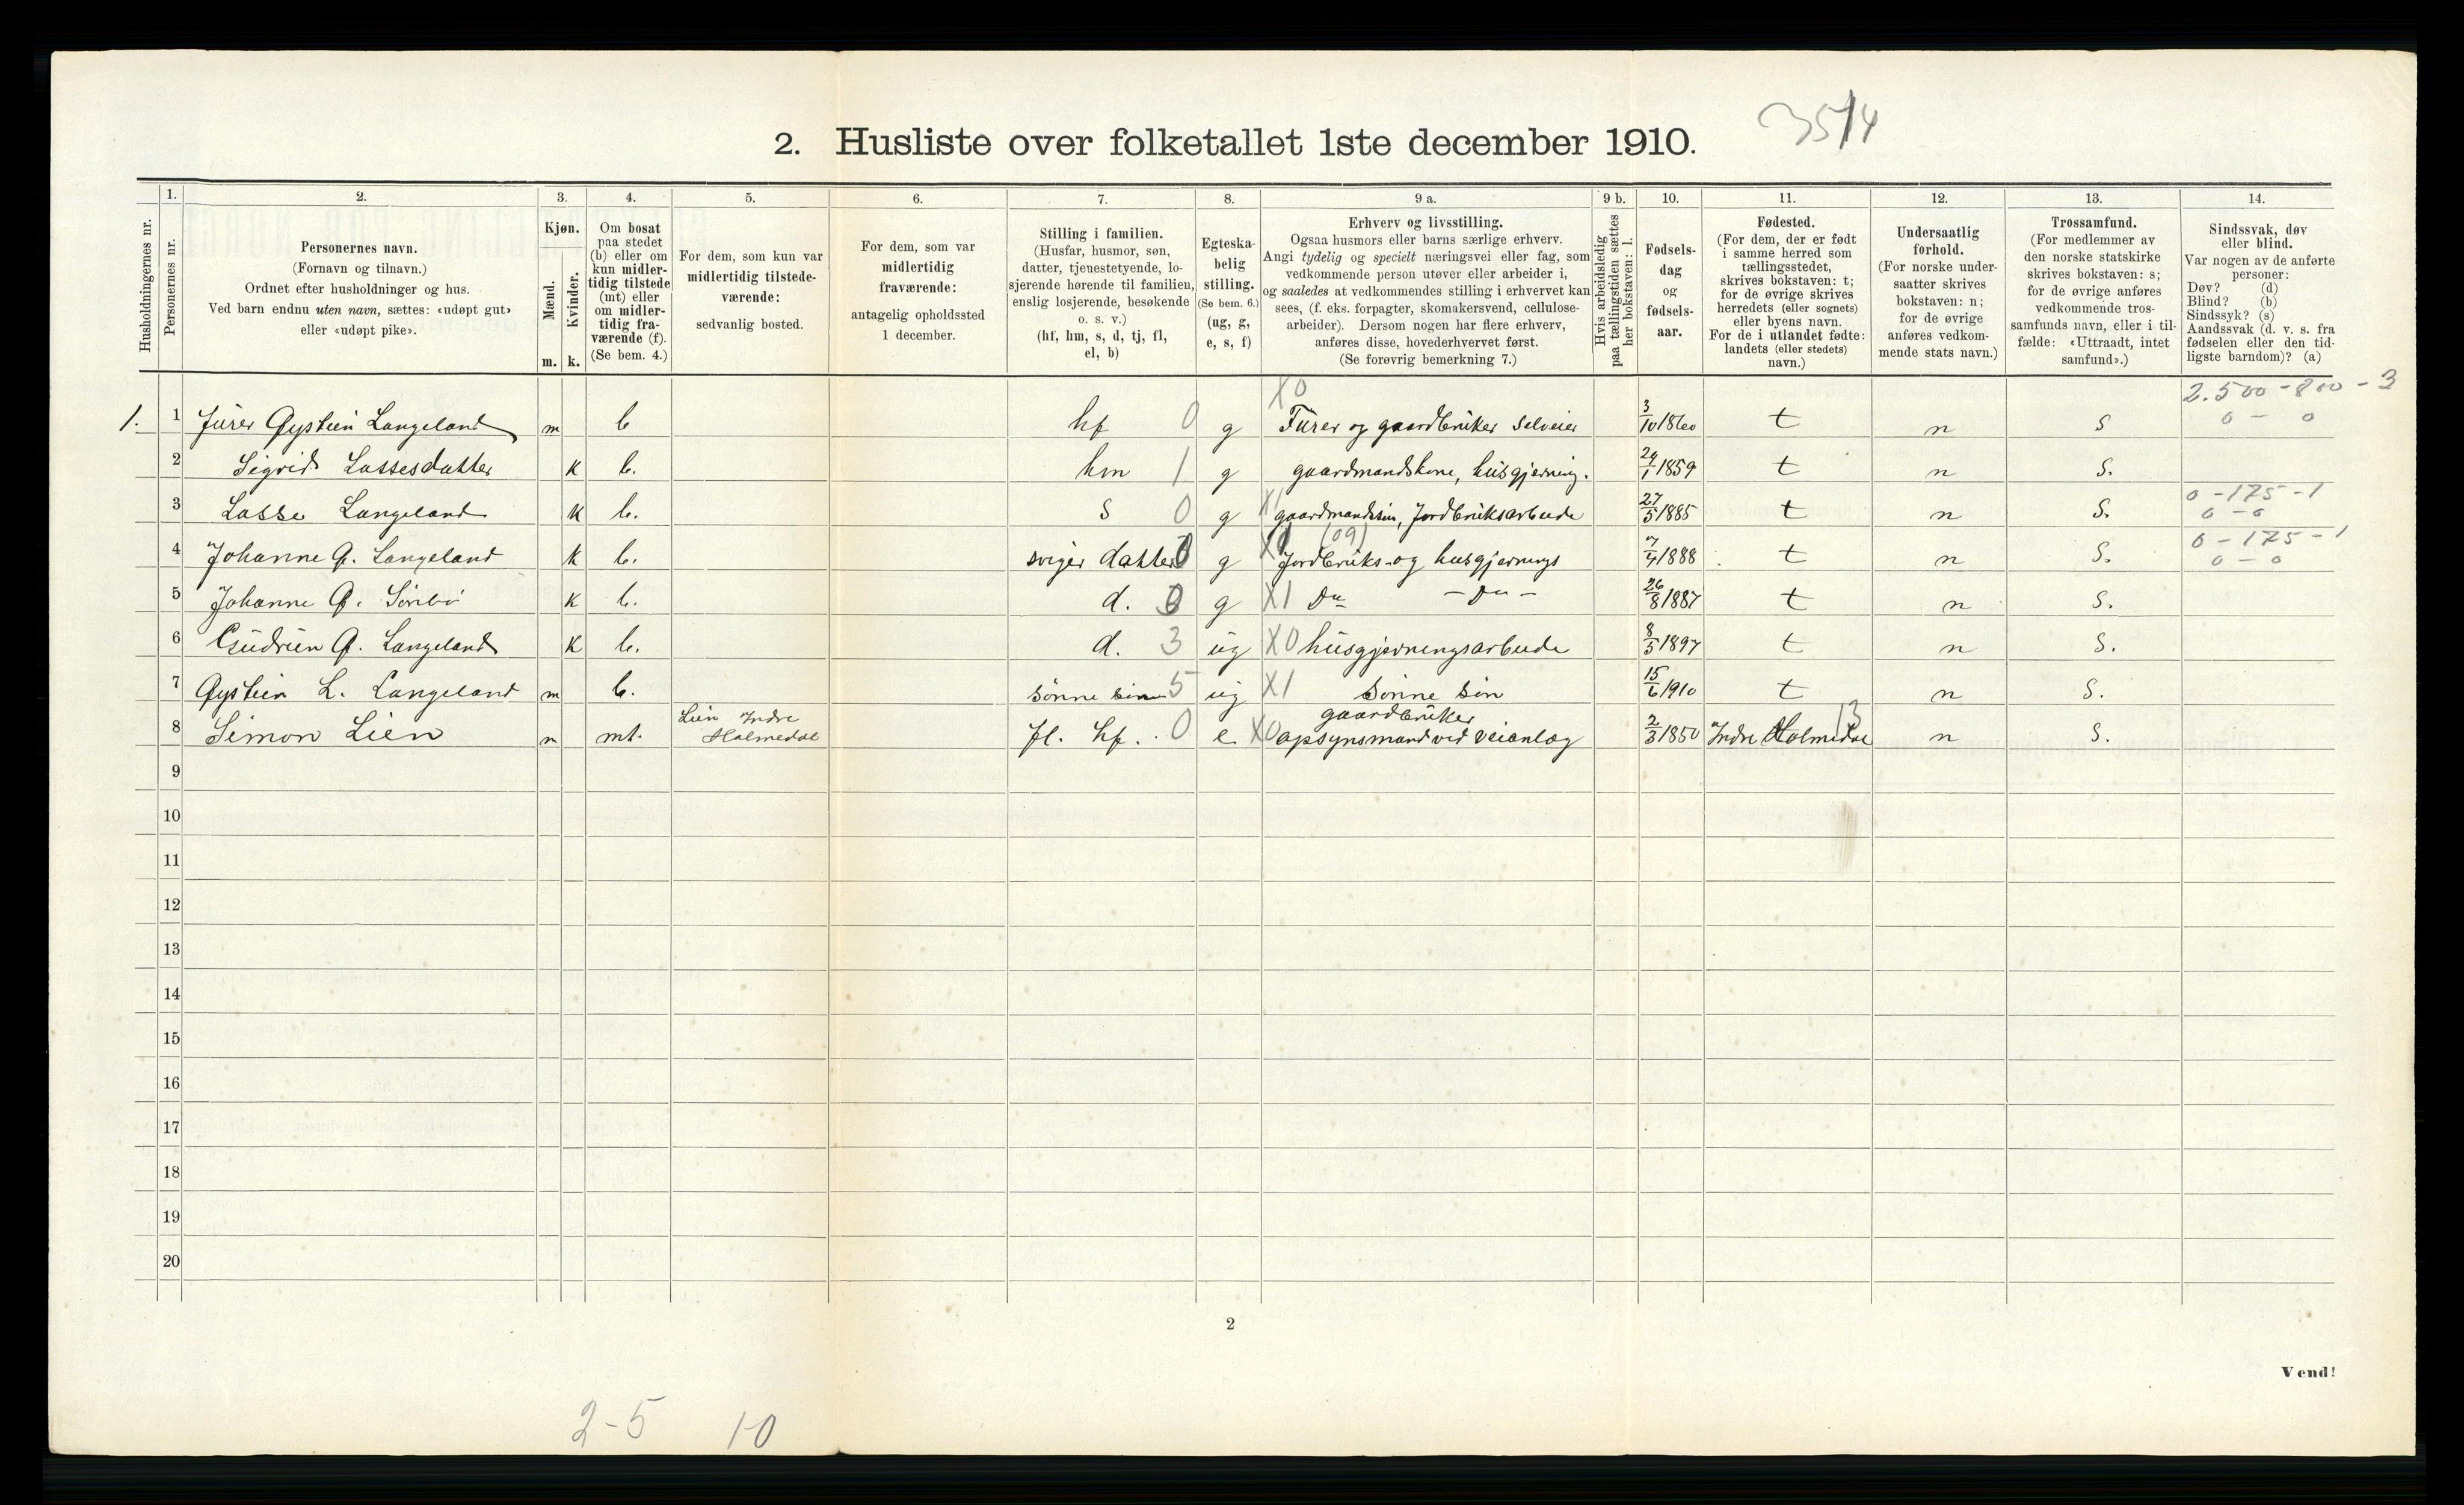 3514
2. Husliste over folketallet 1ste december 1910.
Husholdningernes nr.
1.
Personernes nr.
2.
Personernes navn.
(Fornavn og tilnavn.)
Ordnet efter husholdninger og hus.
Ved barn endnu uten navn, sættes: «udøpt gut»
eller «udøpt pike».
3.
Kjøn.
Mænd.
Kvinder.
m. k.
4.
Om bosat
paa stedet
(b) eller om
kun midler-
tidig tilstede
(mt) eller
om midler-
tidig fra-
værende (f).
(Se bem. 4.)
5.
For dem, som kun var
midlertidig tilstede-
værende:
sedvanlig bosted.
6.
For dem, som var
midlertidig
fraværende:
antagelig opholdssted
1 december.
7.
Stilling i familien.
(Husfar, husmor, søn,
datter, tjenestetyende, lo-
sjerende hørende til familien,
enslig losjerende, besøkende
o. s. v.)
(hf, hm, s, d, tj, fl,
el, b)
8.
Egteska-
belig
stilling.
(Se bem. 6.)
(ug, g,
e, s, f)
9 a.
Erhverv og livsstilling.
Ogsaa husmors eller barns særlige erhverv.
Angi tydelig og specielt næringsvei eller fag, som
vedkommende person utøver eller arbeider i,
og saaledes at vedkommendes stilling i erhvervet kan
sees, (f. eks. forpagter, skomakersvend, cellulose-
arbeider). Dersom nogen har flere erhverv,
anføres disse, hovederhvervet først.
(Se forøvrig bemerkning 7.)
9 b.
Hvis arbeidsledig
paa tællingstiden sættes
her bokstaven: l.
10.
Fødsels-
dag
og
fødsels-
aar.
11.
Fødested.
(For dem, der er født
i samme herred som
tællingsstedet,
skrives bokstaven: t;
for de øvrige skrives
herredets (eller sognets)
eller byens navn.
For de i utlandet fødte:
landets (eller stedets)
navn.)
12.
Undersaatlig
forhold.
(For norske under-
saatter skrives
bokstaven: n;
for de øvrige
anføres vedkom-
mende stats navn.)
13.
Trossamfund.
(For medlemmer av
den norske statskirke
skrives bokstaven: s;
for de øvrige anføres
vedkommende tros-
samfunds navn, eller i til-
fælde: «Uttraadt, intet
samfund».)
14.
Sindssvak, døv
eller blind.
Var nogen av de anførte
personer:
Døv? (d)
Blind? (b)
Sindssyk? (s)
Aandssvak (d. v. s. fra
fødselen eller den tid-
ligste barndom)? (a)
X0 2.500-800-3
1. 1 Fürer Øystein Langeland m b hf 0 g Fürer og gaardbrüker selveier 3/10 1860 t n s 0 - 0
2 Sigrid Lassesdatter k b. hm 1 g gaardmandskone, hüsgjerning. 24/1 1859 t n s.
3 Lasse Langeland k b. s 0 g X1 gaardmandssün, Jordbrüksarbeide 27/5 1885 t n s. 0-175-1 0-0
(09)
4 Johanne Ø. Langeland k b. sviger datter 0 g Jordbrüks-og hüsgjernings 7/4 1888 t n s. 0-175-1 0-0
5 Johanne Ø. k b. d. g X1 Do - Do - 26/8 1887 t n s.
6 Güdrün Ø. Langeland k b. d. 3 üg X0 hüsgjerningsarbeide 8/5 1897 t n s.
7 Øystein L. Langeland m b. sønne søn 5 üg X1 Sønne søn 15/6 1910 t n s.
8 Simon Lien m mt. Lien Indre Holmedal fl. hf. 0 e X0 gaardbrüker opsynsmand ved veianlæg 2/3 1850 Indre Holmedal 13 n s.
9
10
11
12
13
14
15
16
17
18
19
20
2
Vend!
2-5 1-0